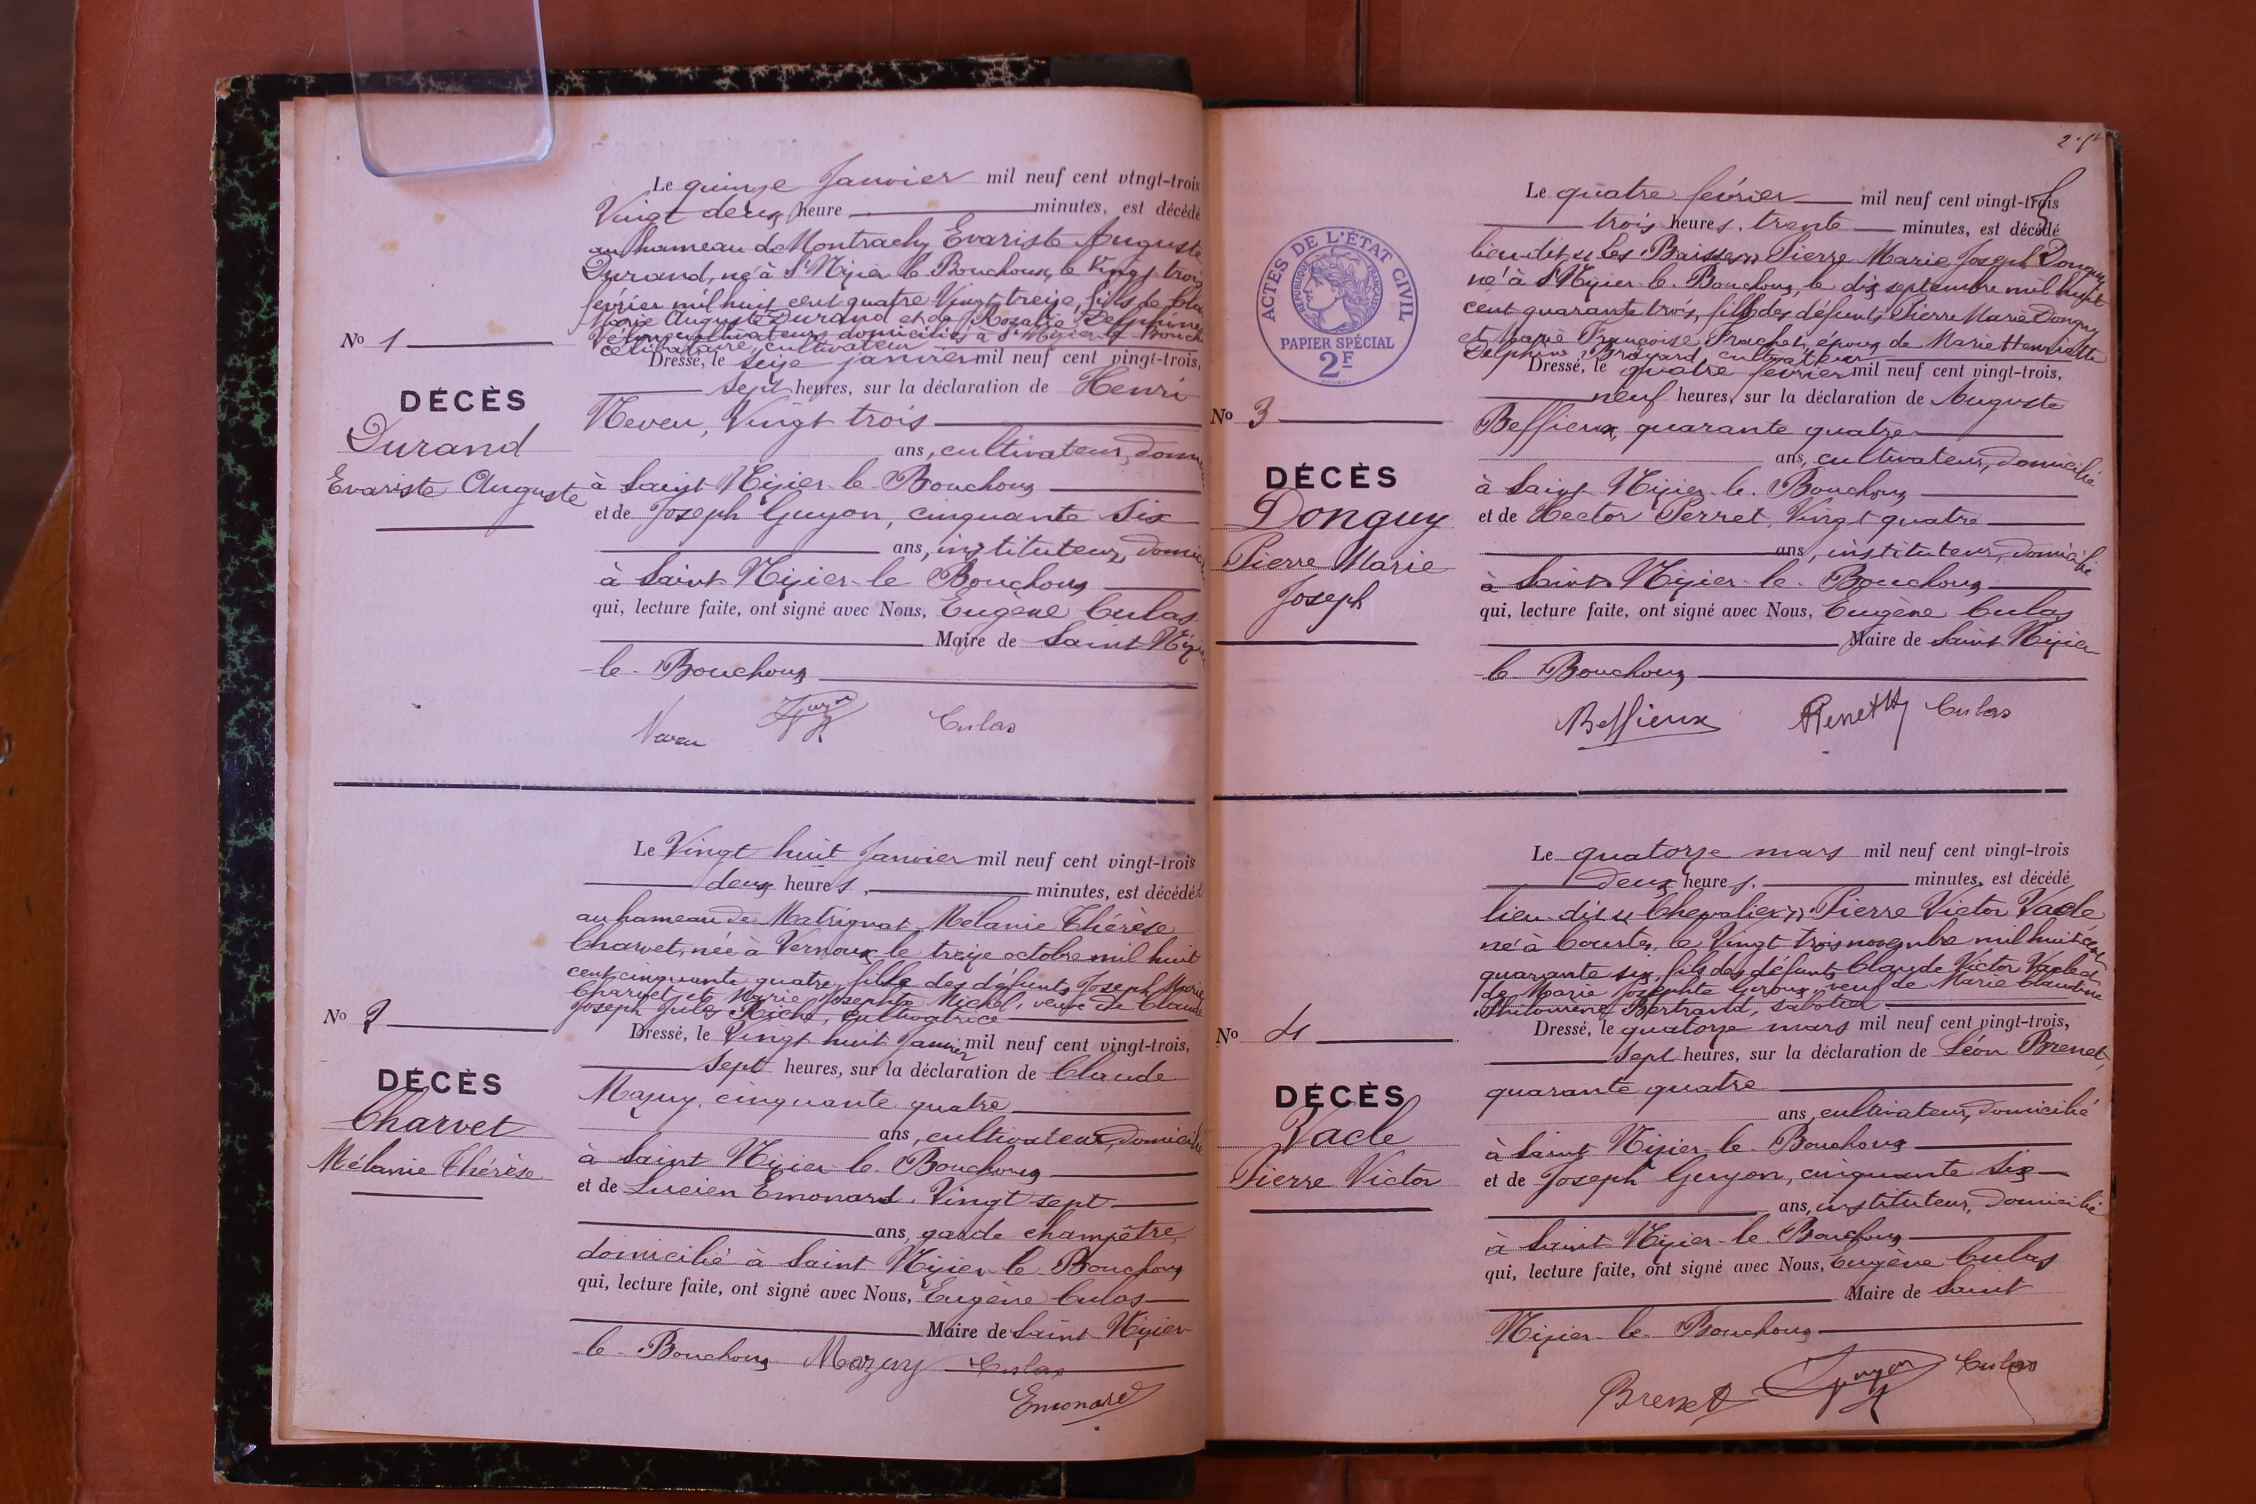 Le quinze Janvier mil neuf cent vingt-trois
Vingt deux heure minutes, est décédé
au hameau de Montrachy Evariste Auguste
Durand, né à St Nizier le Bouchoux, le Vingt trois
février mil huit cent quatre Vingt treize, fils de
Marie Auguste Durand et de Rosalie Delphine
cultivateurs domiciliés à St Nizier le Bouch
célibataire, cultivateur
No 1
Dressé, le seize janvier mil neuf cent vingt-trois,
sept heures, sur la déclaration de Henri
DÉCÈS
Durand
Evariste Auguste
Neveu, Vingt trois
ans, cultivateur,
à Saint Nizier-le-Bouchoux
et de Joseph Guyon, cinquante six
ans, instituteur,
à Saint Nizier-le Bouchoux
qui, lecture faite, ont signé avec Nous, Eugène Culas
Maire de Saint
le-Bouchoux
Neveu Guyon Culas
Le Vingt huit Janvier mil neuf cent vingt-trois
deux heures, minutes, est décédée
au hameau de Matrignat Mélanie Thérèse
Charvet, née à Vernoux le treize octobre mil huit
cent cinquante quatre, fille des défunts Joseph Marie
Charvet et Marie Josephte Michel, veuve de Claude
Joseph Jules Riche, cultivatrice
No 2
Dressé, le Vingt huit Janvier mil neuf cent vingt-trois,
sept heures, sur la déclaration de Claude
DÉCÈS
Charvet
Mélanie Thérèse
Mazuy, cinquante quatre
ans, cultivateur, domicilié
à Saint Nizier-le-Bouchoux
et de Lucien Emonard, Vingt sept
ans, garde champêtre,
domicilié à Saint Nizier-le-Bouchoux
qui, lecture faite, ont signé avec Nous, Eugène Culas
Maire de Saint Nizier
le-Bouchoux Mazuy Culas
Emonard
Le quatre février mil neuf cent vingt-trois
trois heures, trente minutes, est décédé
lieu-dit « Les Baisses » Pierre Marie Joseph Donguy
né à St Nizier-le-Bouchoux, le dix septembre mil huit
cent quarante trois, fils des défunts Pierre Marie Donguy
et Marie Françoise Frachet, époux de Marie Henriette
Delphine Broyard, cultivateur
ACTES DE L'ÉTAT CIVIL
RÉPUBLIQUE FRANÇAISE
PAPIER SPÉCIAL
2F
No 3
Dressé, le quatre février mil neuf cent vingt-trois,
neuf heures, sur la déclaration de Auguste
DÉCÈS
Donguy
Pierre Marie
Joseph
Beffieux, quarante quatre
ans, cultivateur, domicilié
à Saint Nizier-le-Bouchoux
et de Hector Perret, Vingt quatre
ans, instituteur, domicilié
à Saint Nizier-le-Bouchoux
qui, lecture faite, ont signé avec Nous, Eugène Culas
Maire de Saint Nizier
le-Bouchoux
Beffieux Culas
Le quatorze mars mil neuf cent vingt-trois
deux heures, minutes, est décédé
lieu-dit « Chevalier » Pierre Victor Vacle
né à Courtes, le Vingt trois novembre mil huit cent
quarante six, fils des défunts Claude Victor Vacle et
de Marie Josephte Giroux, veuf de Marie Claudine
Philomène Bertrand, sabotier
No 4
Dressé, le quatorze mars mil neuf cent vingt-trois,
sept heures, sur la déclaration de Léon Brenet,
DÉCÈS
Vacle
Pierre Victor
quarante quatre
ans, cultivateur, domicilié
à Saint Nizier-le-Bouchoux
et de Joseph Guyon, cinquante six
ans, instituteur, domicilié
à Saint Nizier-le-Bouchoux
qui, lecture faite, ont signé avec Nous, Eugène Culas
Maire de Saint
Nizier-le-Bouchoux
Brenet Guyon Culas